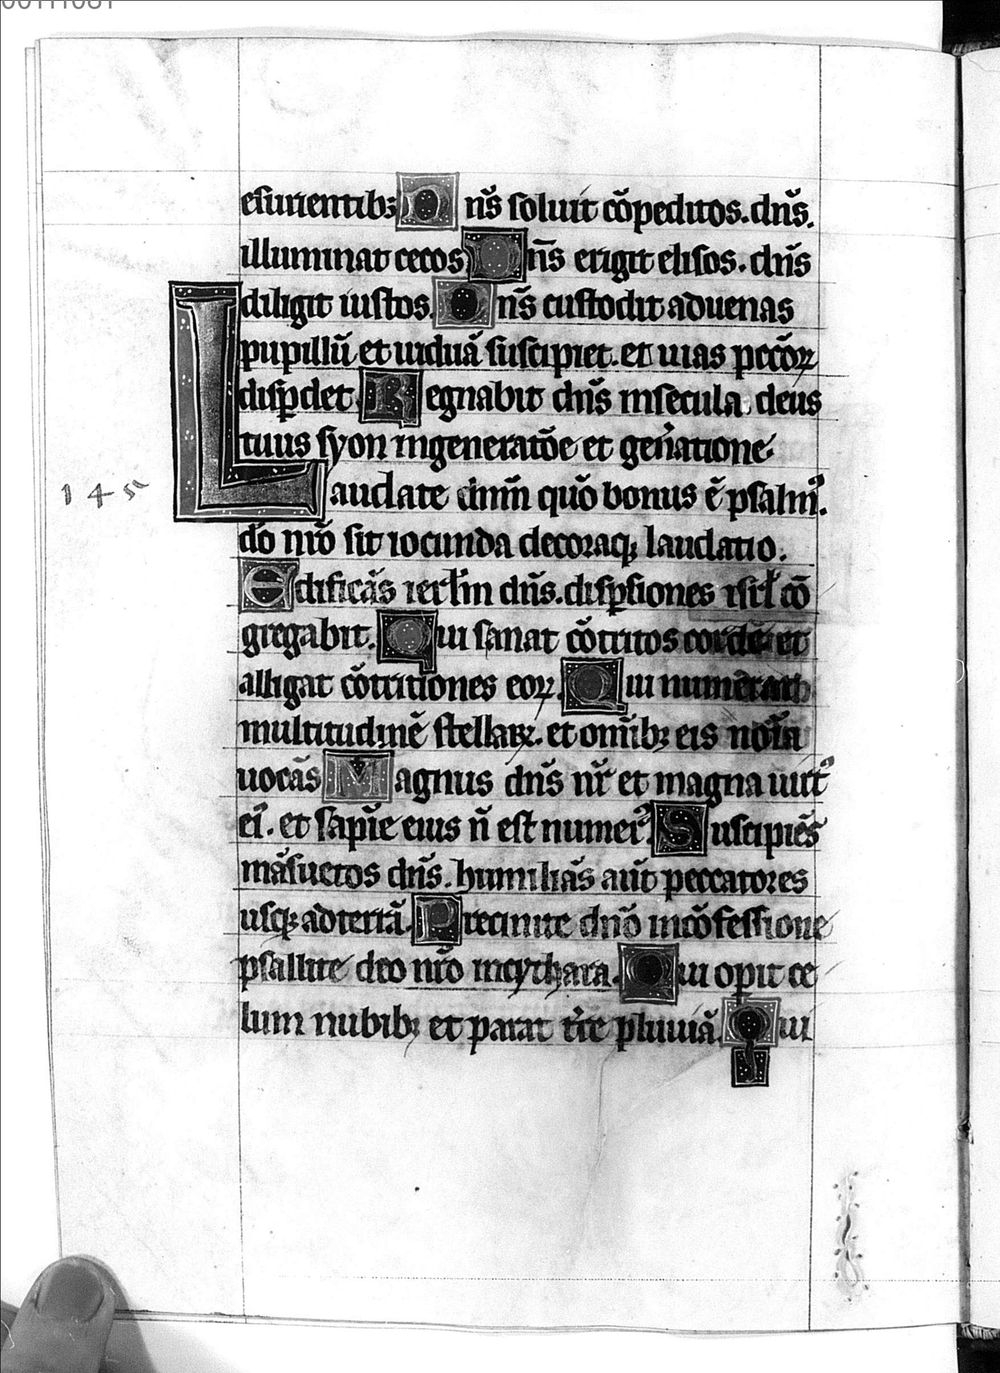 00111081
esurientibꝫ Dn̄s soluit cōpeditos. dn̄s.
illuminat cecos Dn̄s erigit elisos. dn̄s
diligit iustos. Dn̄s custodit aduenas
pupillū et uiduā suscipiet. et uias pccōꝝ
disꝑdet Regnabit dn̄s insecula deus
tuus syon ingeneratōe et gen̾atione.
145
Laudate dnm̄ quō bonus ē psalm᷒.
dō nr̄o sit iocunda decoraqꝫ laudatio.
Edificās ierlm̄ dn̄s. disꝑsiones isrl̄ cō
gregabit. Qui sanat cōtritos corde et
alligat cōtritiones eoꝝ. Qui numerat
multitudinē stellaꝝ. et omībꝫ eis noīa
uocās Magnus dn̄s nr̄ et magna uirt᷒
ei᷒. et sapīe eius n̄ est numer᷒ Suscipiēs
māsuetos dn̄s. humiliās aūt peccatores
usqꝫ adterrā. Precinite dn̄o incōfessione
psallite deo nr̄o incythara. Qui opit ce
lum nubibꝫ et parat t̄re pluuiā. Qui